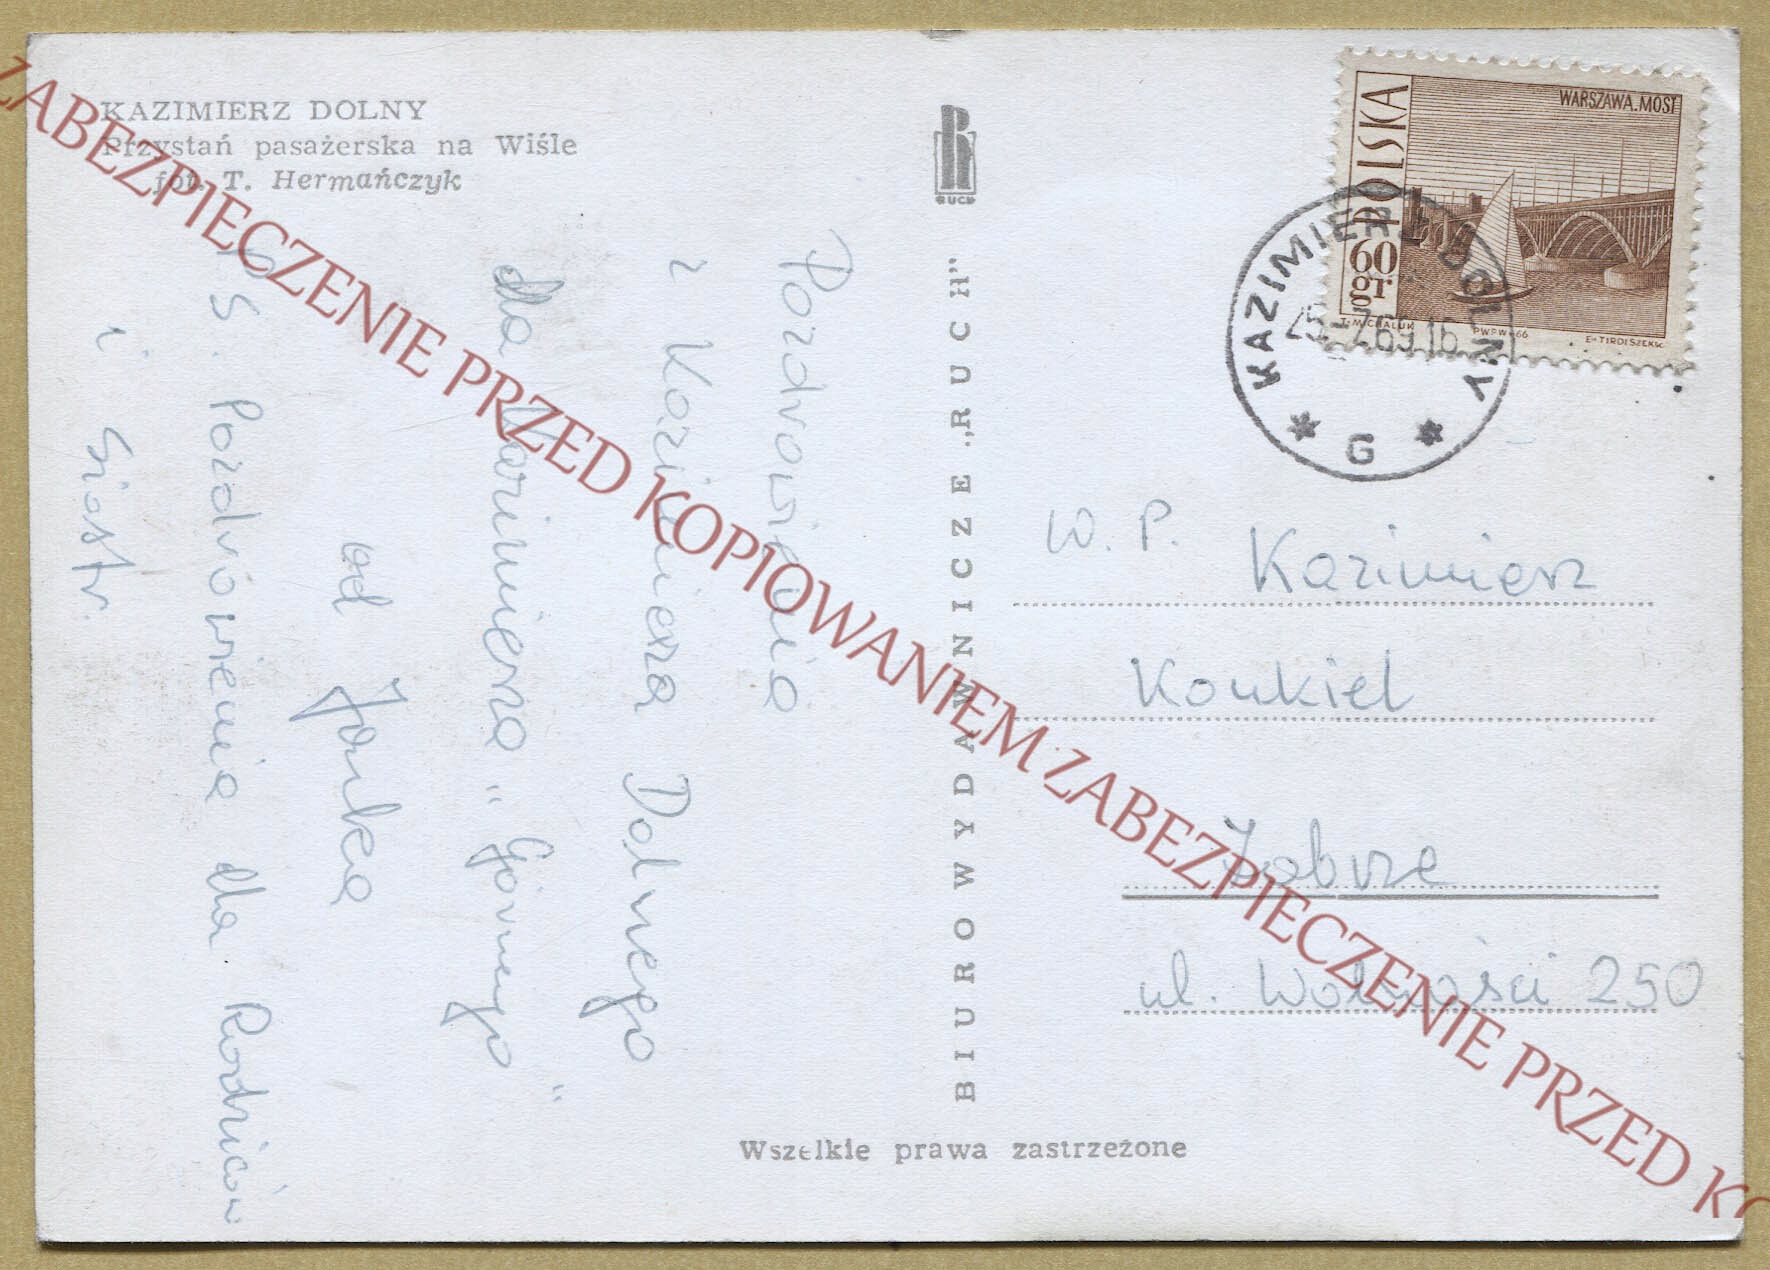 KAZIMIERZ DOLNY
Przystań pasażerska na Wiśle
fot. T. Hermańczyk
Pozdrowienia
z Kazimierza Dolnego
dla Kazimierza "Górnego"
od Janka
P. S. Pozdrowienia dla Rodziców
i Siostr.
RUCH
BIURO WYDAWNICZE „RUCH"
Wszelkie prawa zastrzeżone
POLSKA
60
gr
WARSZAWA. MOST
T. MICHALUK
PWPW-66
KAZIMIERZ DOLNY
25-7.69.16
* G *
W. P. Kazimierz
Konkiel
Zabrze
ul. Wolności 250
ZABEZPIECZENIE PRZED KOPIOWANIEM ZABEZPIECZENIE PRZED KO